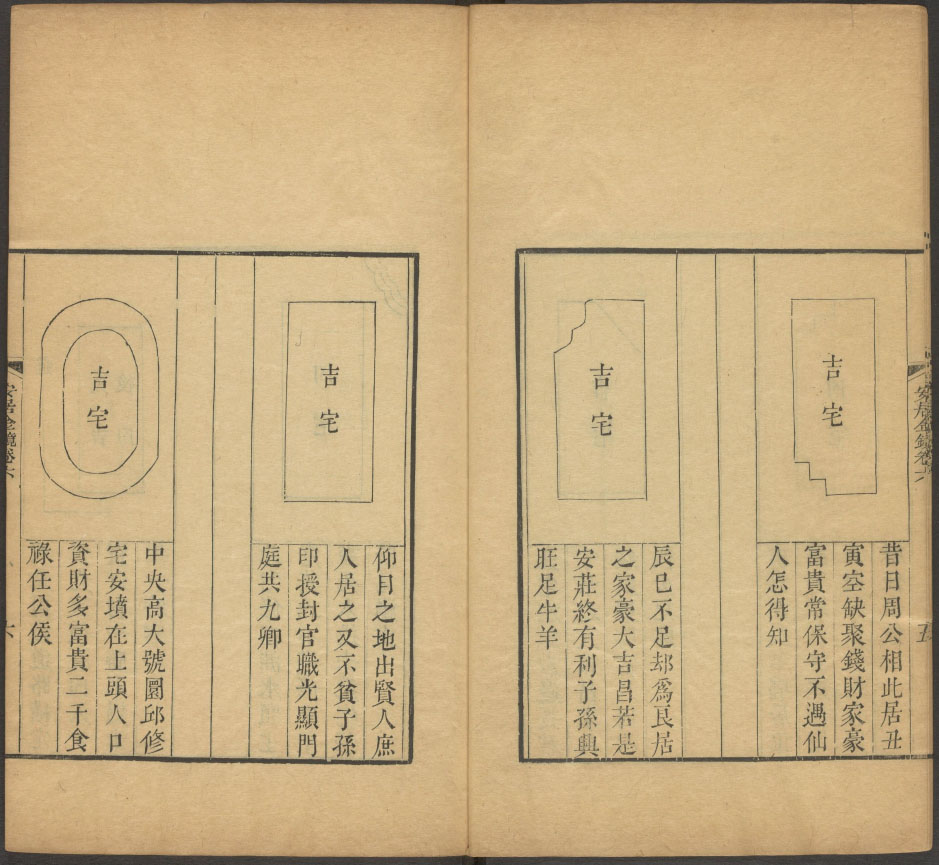 安居金鏡卷六
五
吉宅
昔日周公相此居丑
寅空缺聚錢財家豪
富貴常保守不遇仙
人怎得知
吉宅
辰巳不足却爲良居
之家豪大吉昌若是
安莊終有利子孫興
旺足牛羊
吉宅
仰目之地出賢人庶
人居之又不貧子孫
印授封官職光顯門
庭共九卿
吉宅
中央高大號圜邱修
宅安墳在上頭人口
資財多富貴二千食
祿任公侯
安居金鏡卷六
六